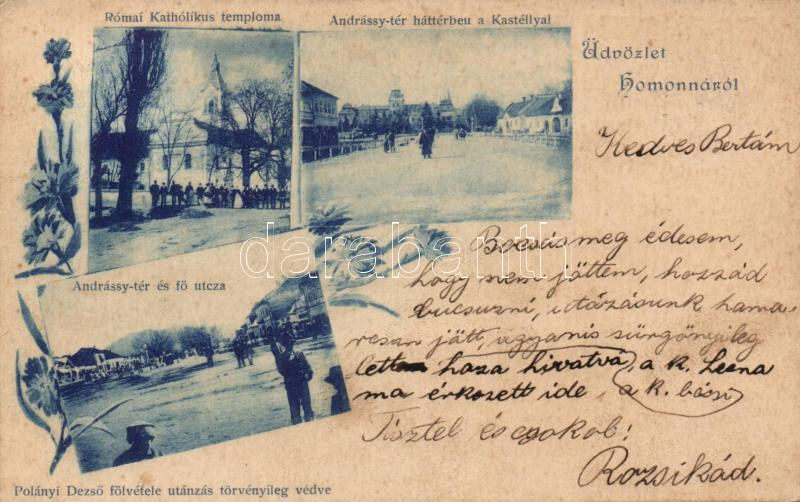 Római Kathólikus temploma
Andrássy-tér háttérbeu a Kastéllyal
Üdvözlet
Homonnáról
Kedves Bertám
Bocsás meg édesem,
hogy nem jöttem, hozzád
bucsuzni, utázásunk hama
rosan jött, ugyanis sürgönyileg
lettem haza hivatvá, a k. Leena
ma érkezett ide, a k. bácsi
Tisztel és csokol!
Rozsikád.
Andrássy-tér és fő utcza
Polányi Dezső fölvétele utánzás törvényileg védve
darabanth